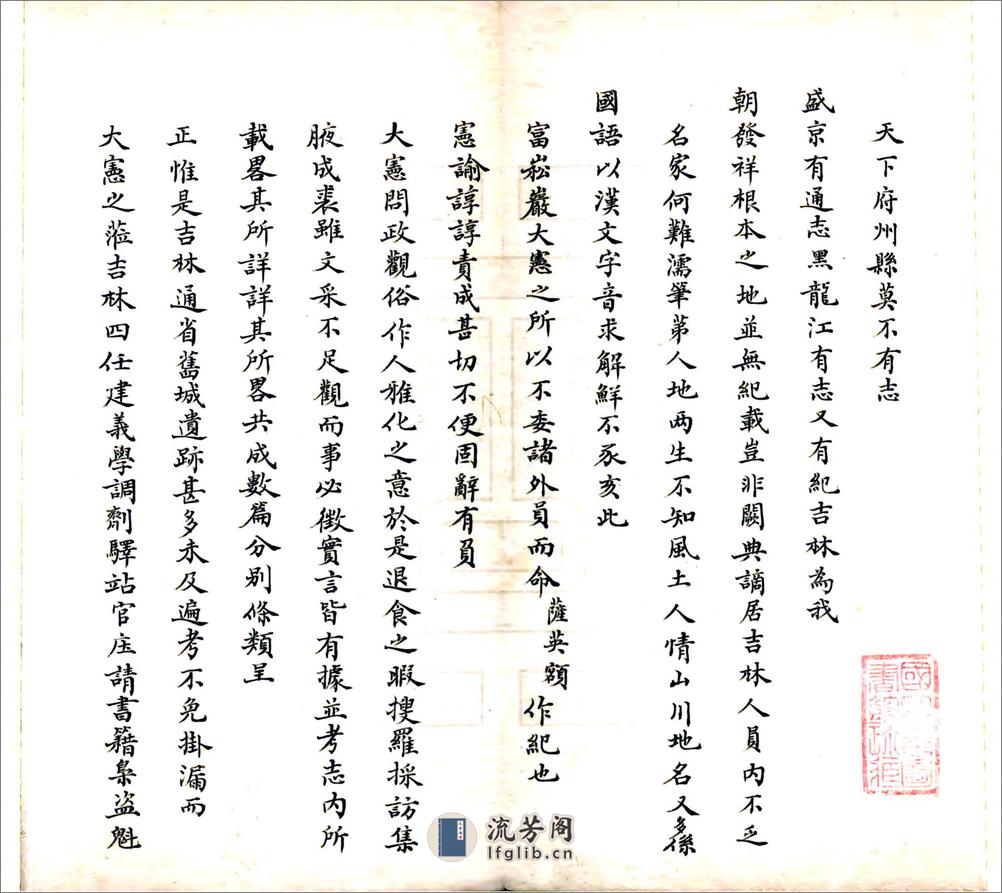 天下府州縣莫不有志
盛京有通志黑龍江有志又有紀吉林為我
朝發祥根本之地並無紀載豈非闕典謫居吉林人員內不乏
名家何難濡筆第人地两生不知風土人情山川地名又多係
國語以漢文字音求解鮮不豕亥此
富崧巖大憲之所以不委諸外員而命薩英額作紀也
憲諭諄諄責成甚切不便固辭有負
大憲問政觀俗作人雅化之意於是退食之暇搜羅採訪集
腋成裘雖文采不足觀而事必徵實言皆有據並考志內所
載畧其所詳詳其所畧共成數篇分别條類呈
正惟是吉林通省舊城遺跡甚多未及遍考不免掛漏而
大憲之蒞吉林四任建義學調劑驛站官庄請書籍梟盗魁
流芳阁
lfglib.cn